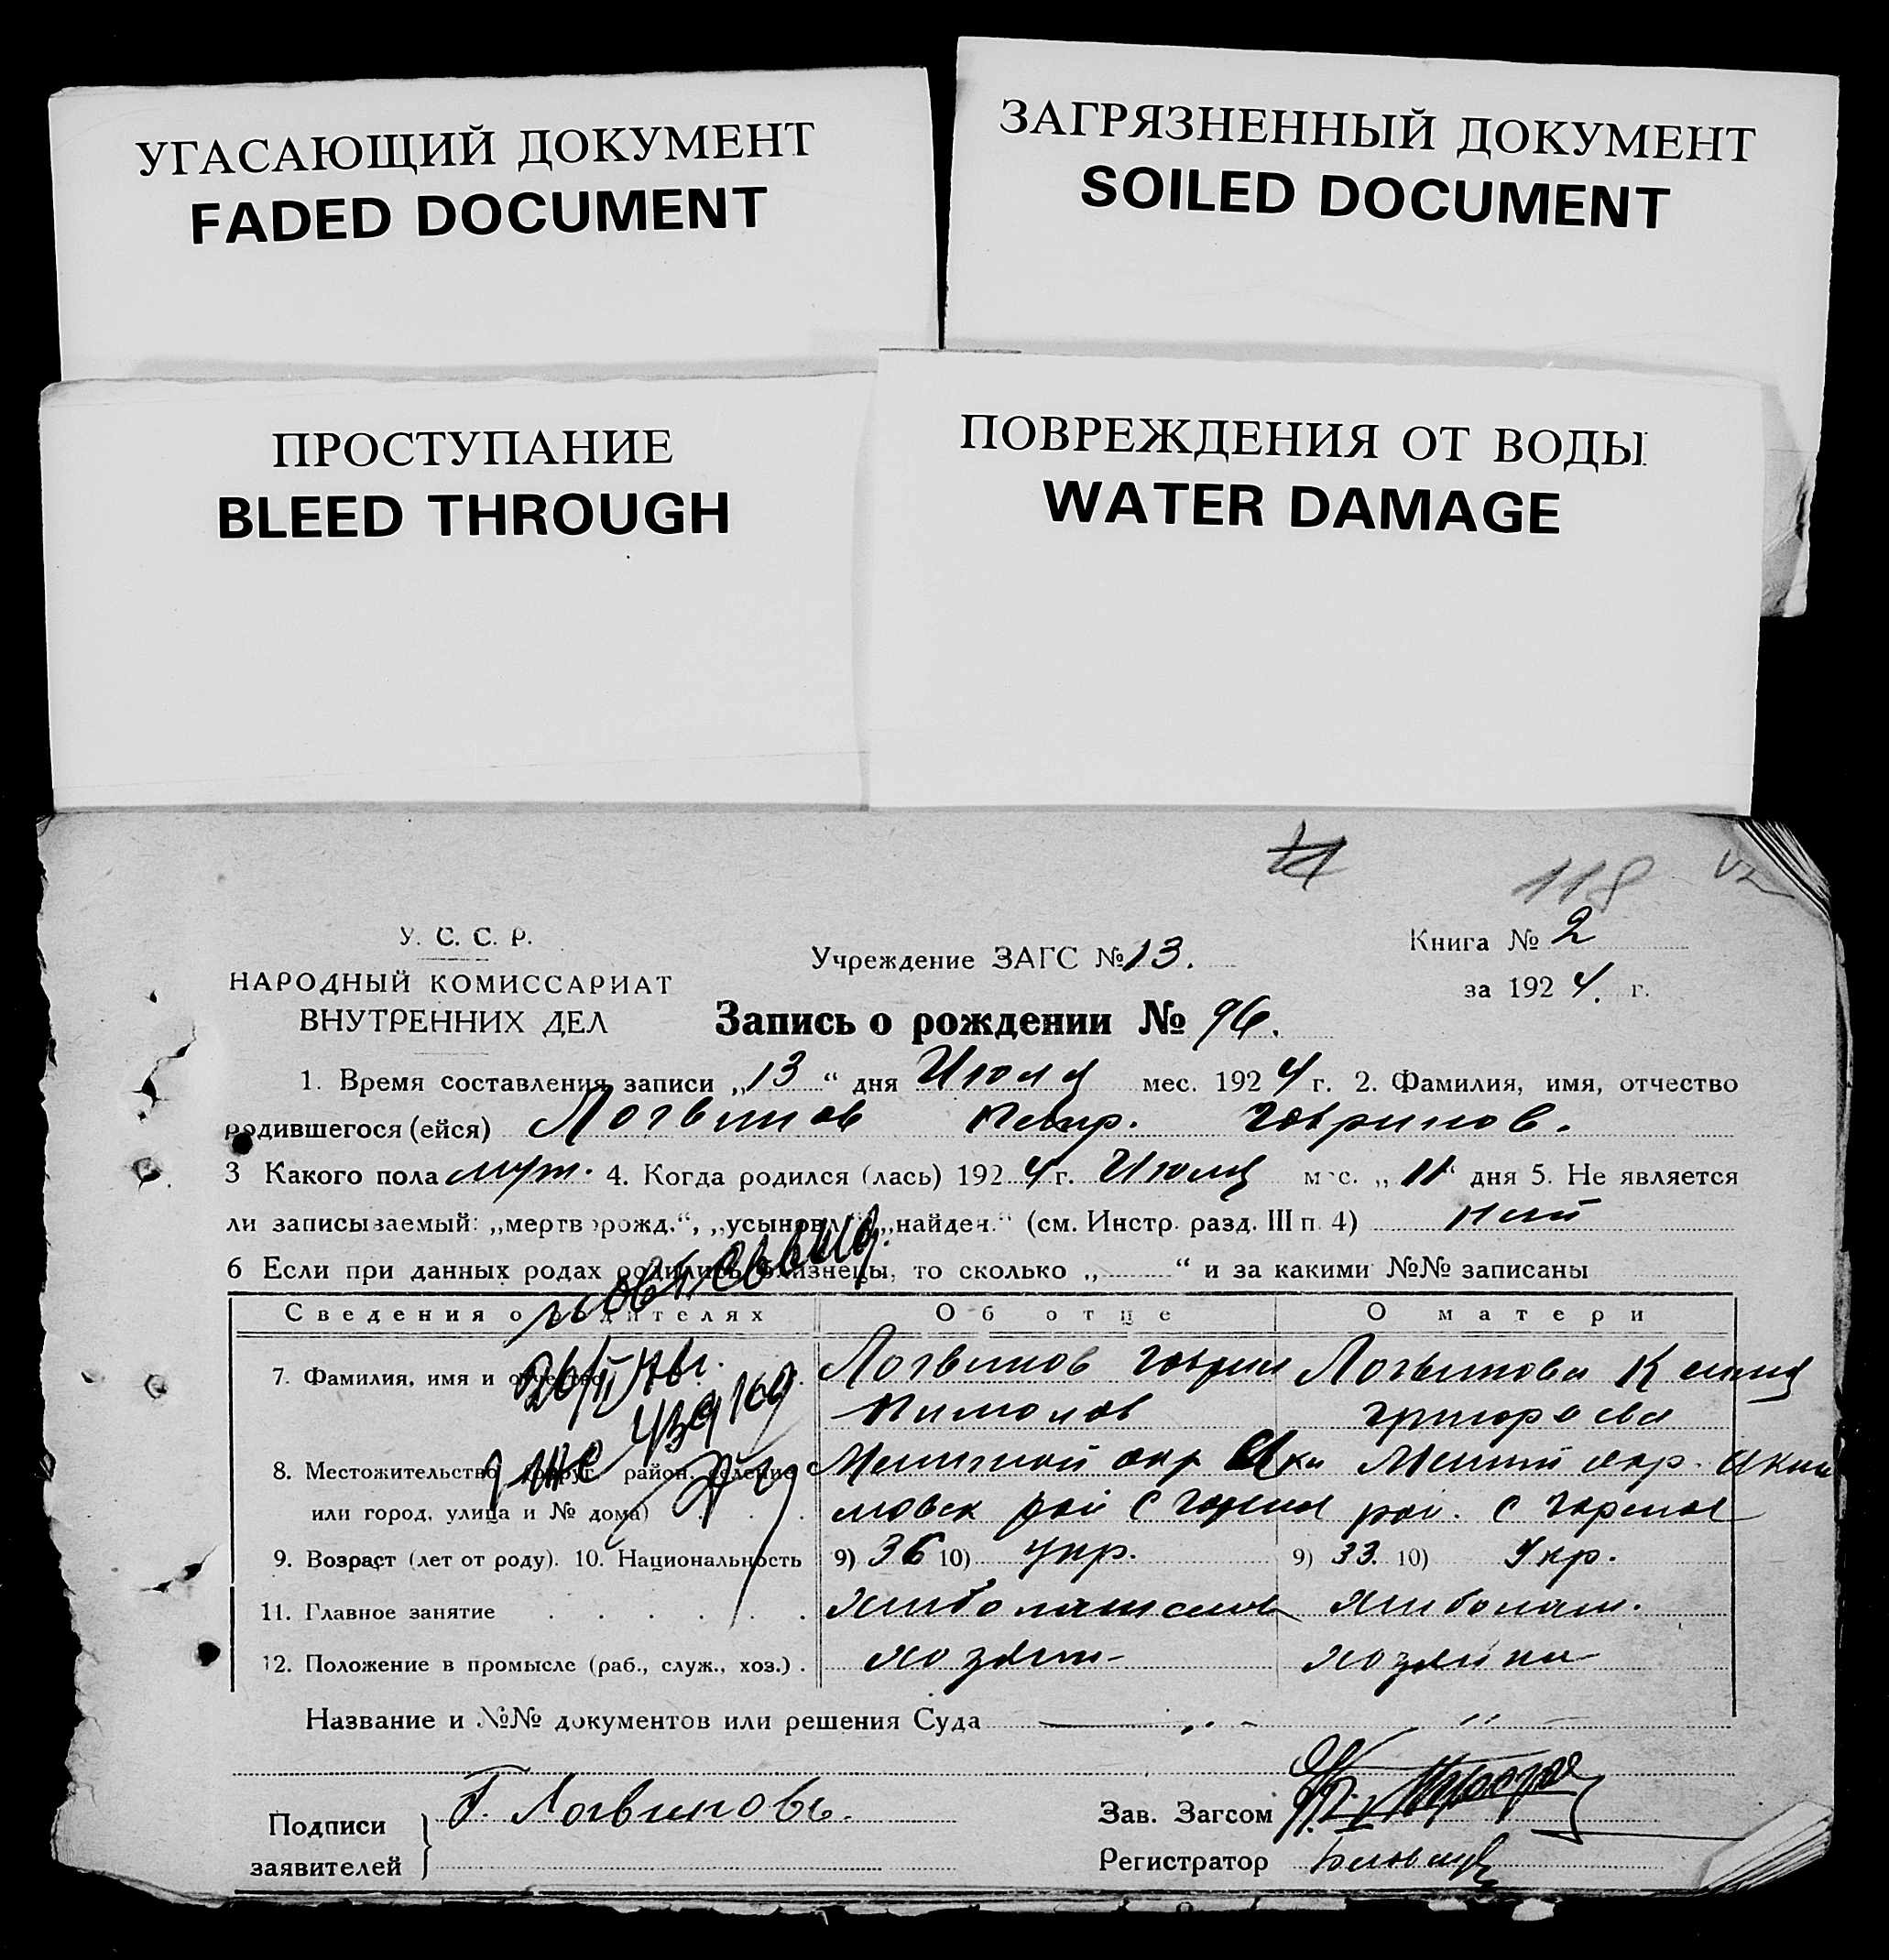 УГАСАЮЩИЙ ДОКУМЕНТ
FADED DOCUMENT
ЗАГРЯЗНЕННЫЙ ДОКУМЕНТ
SOILED DOCUMENT
ПРОСТУПАНИЕ
BLEED THROUGH
ПОВРЕЖДЕНИЯ ОТ ВОДЫ
WATER DAMAGE
118
У. С. С. Р.
НАРОДНЫЙ КОМИССАРИАТ
ВНУТРЕННИХ ДЕЛ
Учреждение ЗАГС № 13.
Книга № 2
за 1924. г.
Запись о рождении № 96.
1. Время составления записи „13“ дня Июля мес. 1924 г. 2. Фамилия, имя, отчество
родившегося (ейся) Логвинов Петр. Гавринов.
3 Какого пола муж. 4. Когда родился (лась) 1924 г. Июля мес. „11“ дня 5. Не является
ли записываемый: „мертворожд.“, „усыновл.“, „найден.“ (см. Инстр. разд. III п. 4)
6 Если при данных родах родились близнецы, то сколько „ “ и за какими №№ записаны
Сведения о родителях Об отце О матери
7. Фамилия, имя и отчество Логвинов Гаврил Логвинова
Пимонов
8. Местожительство (округ, район, селение
или город, улица и № дома) рай с рай. с
9. Возраст (лет от роду). 10. Национальность 9) 36 10) Укр. 9) 33. 10) Укр.
11. Главное занятие Хлебопашество Хлебопаш.
12. Положение в промысле (раб., служ., хоз.) . хозяин хозяйка
Название и №№ документов или решения Суда
Подписи
заявителей
Г. Логвиновъ.
Зав. Загсом
Регистратор